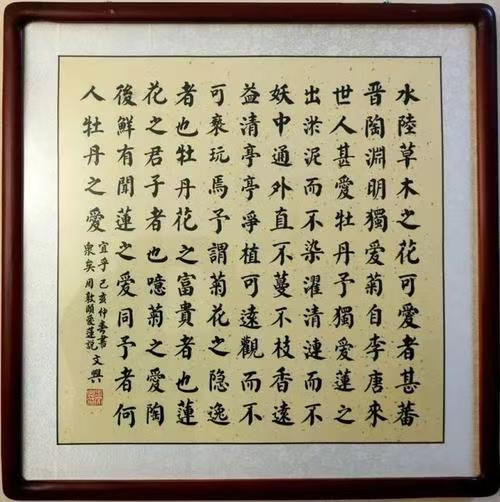 水陸草木之花可愛者甚蕃
晋陶淵明獨愛菊自李唐來
世人甚愛牡丹予獨愛蓮之
出淤泥而不染濯清漣而不
妖中通外直不蔓不枝香遠
益清亭亭凈植可遠觀而不
可褻玩焉予謂菊花之隐逸
者也牡丹花之富貴者也蓮
花之君子者也噫菊之愛陶
後鮮有聞蓮之愛同予者何
人牡丹之愛
宜乎 己亥仲春書
衆矣 周敦頤愛蓮說
文興